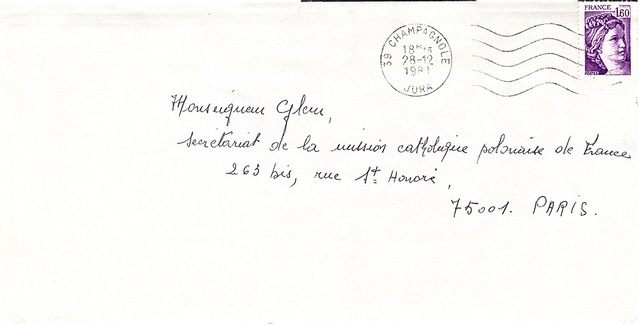 FRANCE
1,60
39 CHAMPAGNOLE
18H
28-12
1981
JURA
Monseigneur Glem,
secrétariat de la mission catholique polonaise de France
263 bis, rue St Honoré,
75001. PARIS.